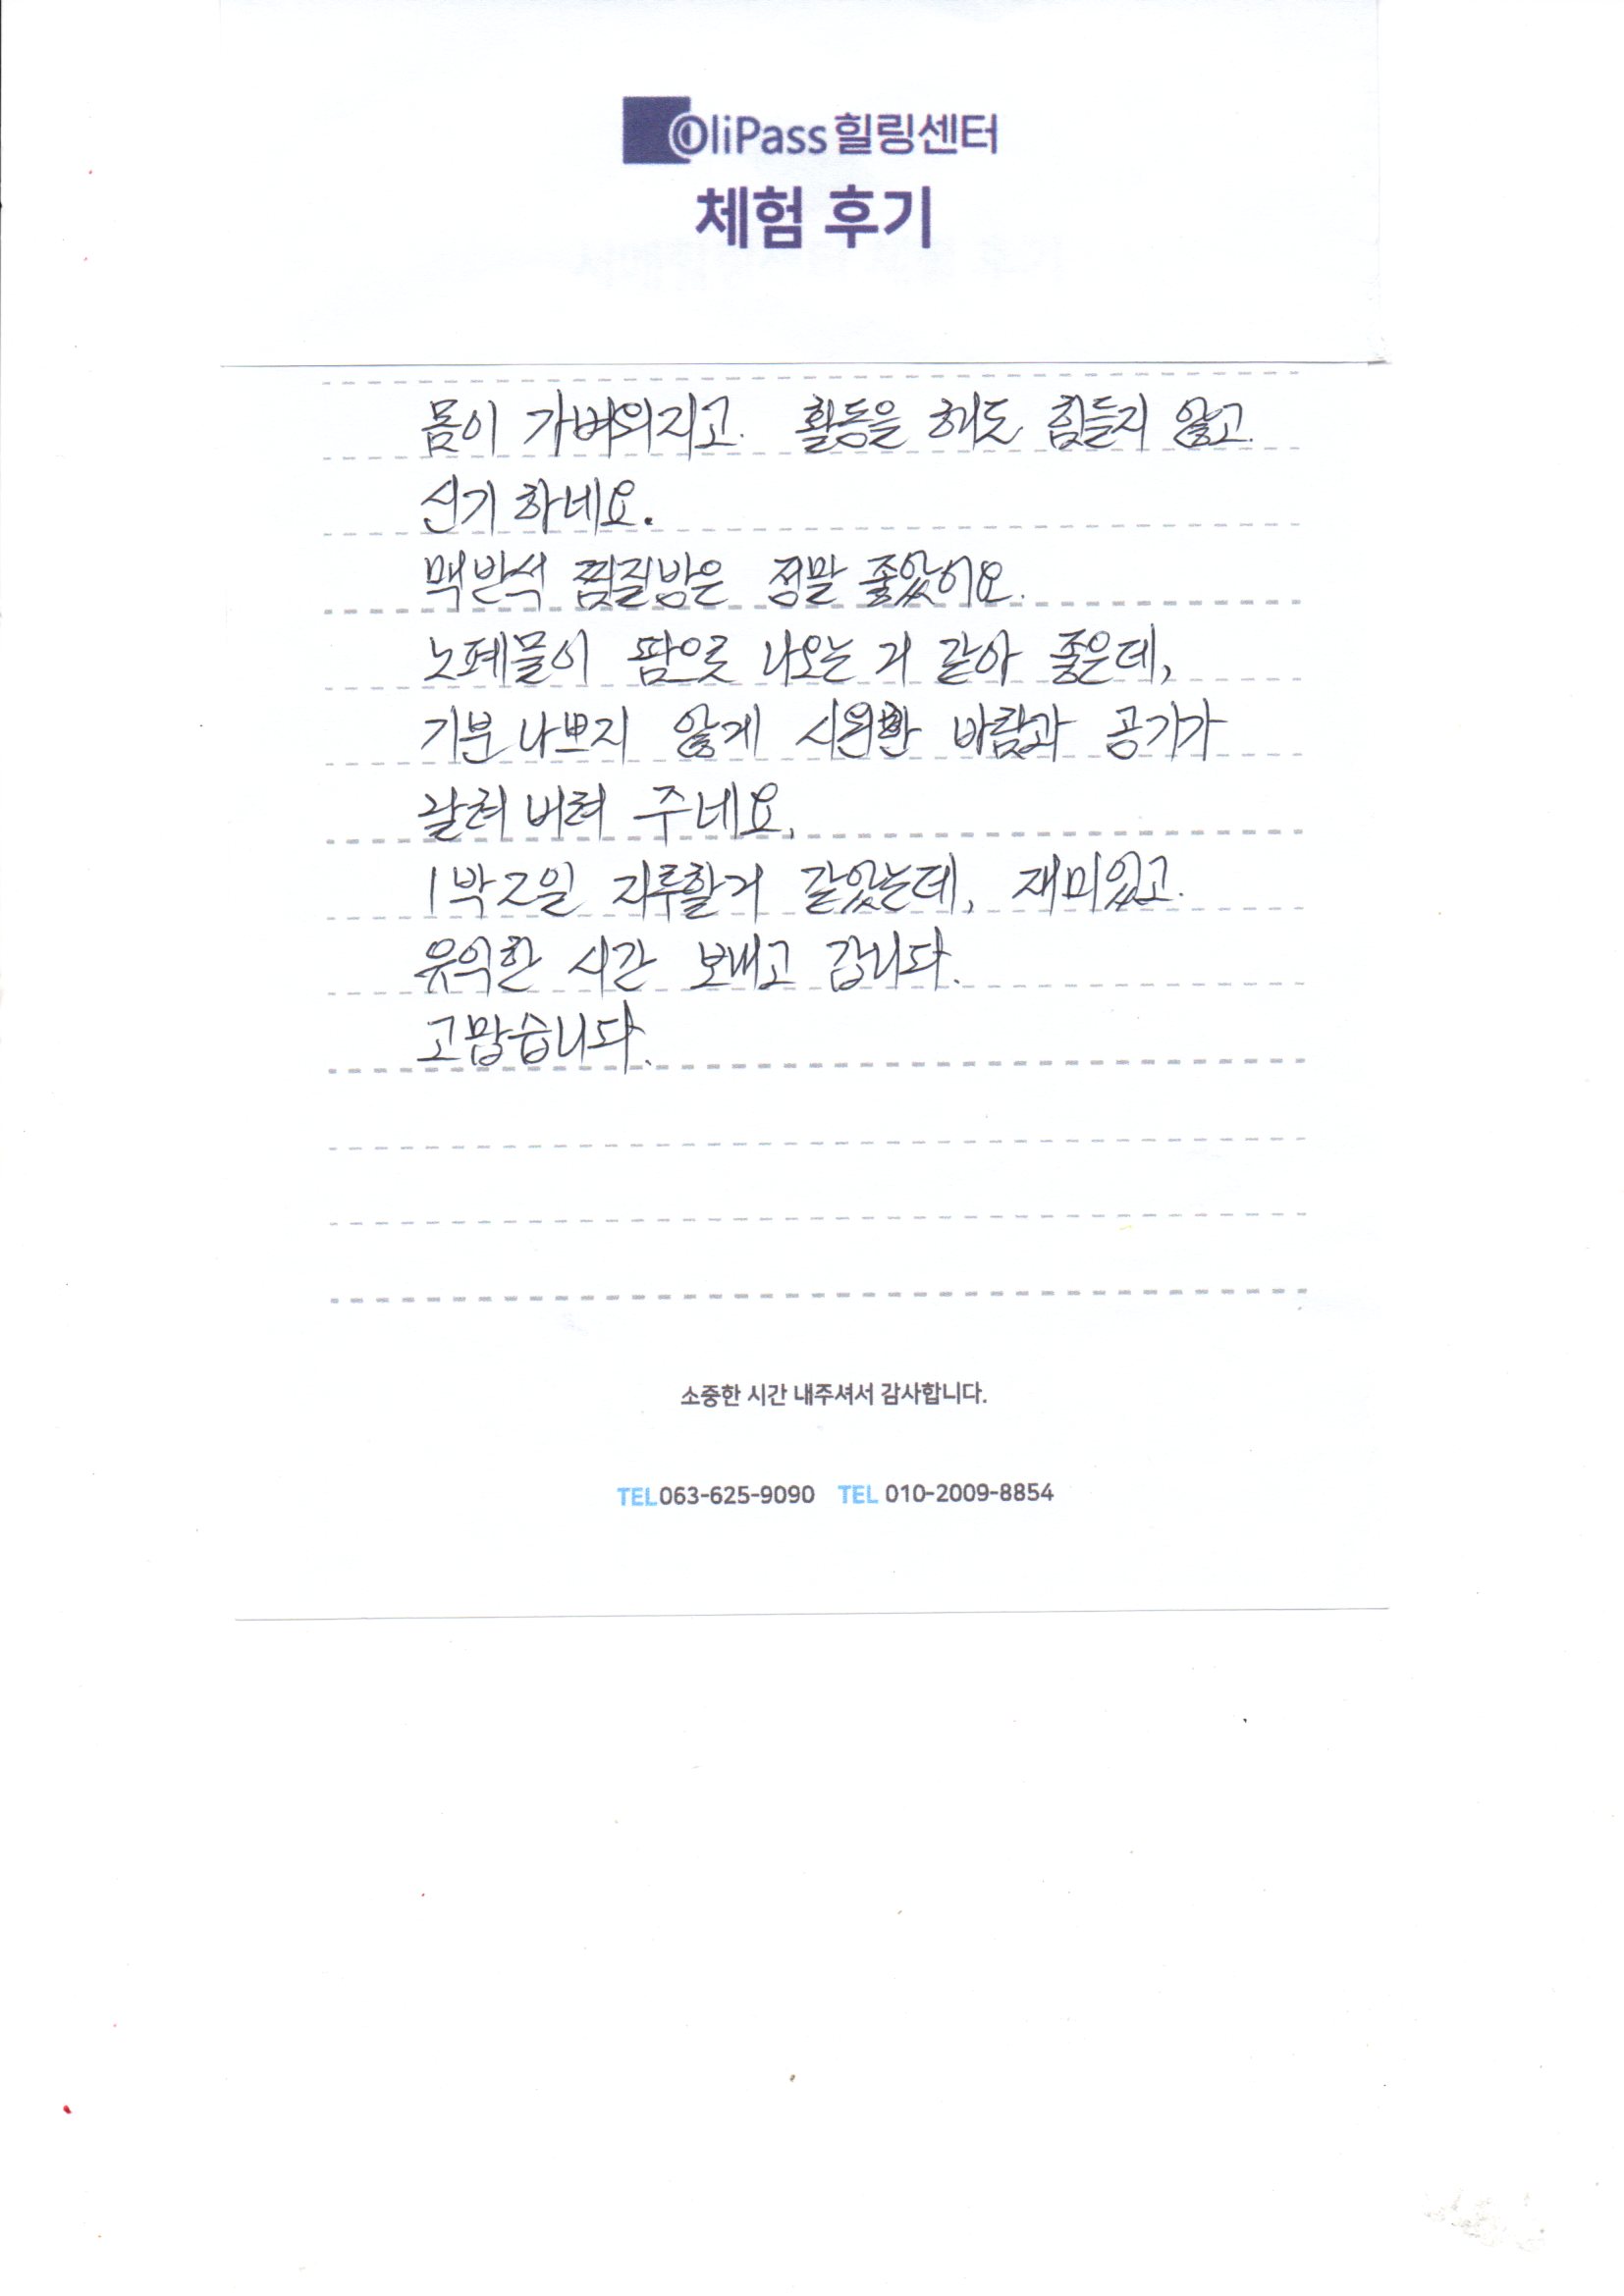 OliPass 힐링센터
체험 후기
몸이 가벼워지고. 활동을 해도 힘들지 않고.
신기 하네요.
맥반석 찜질방은 정말 좋았어요.
노폐물이 땀으로 나오는 거 같아 좋은데,
기분 나쁘지 않게 시원한 바람과 공기가
날려 버려 주네요.
1박2일 지루할거 같았는데, 재미있고.
유익한 시간 보내고 갑니다.
고맙습니다.
소중한 시간 내주셔서 감사합니다.
TEL 063-625-9090 TEL 010-2009-8854